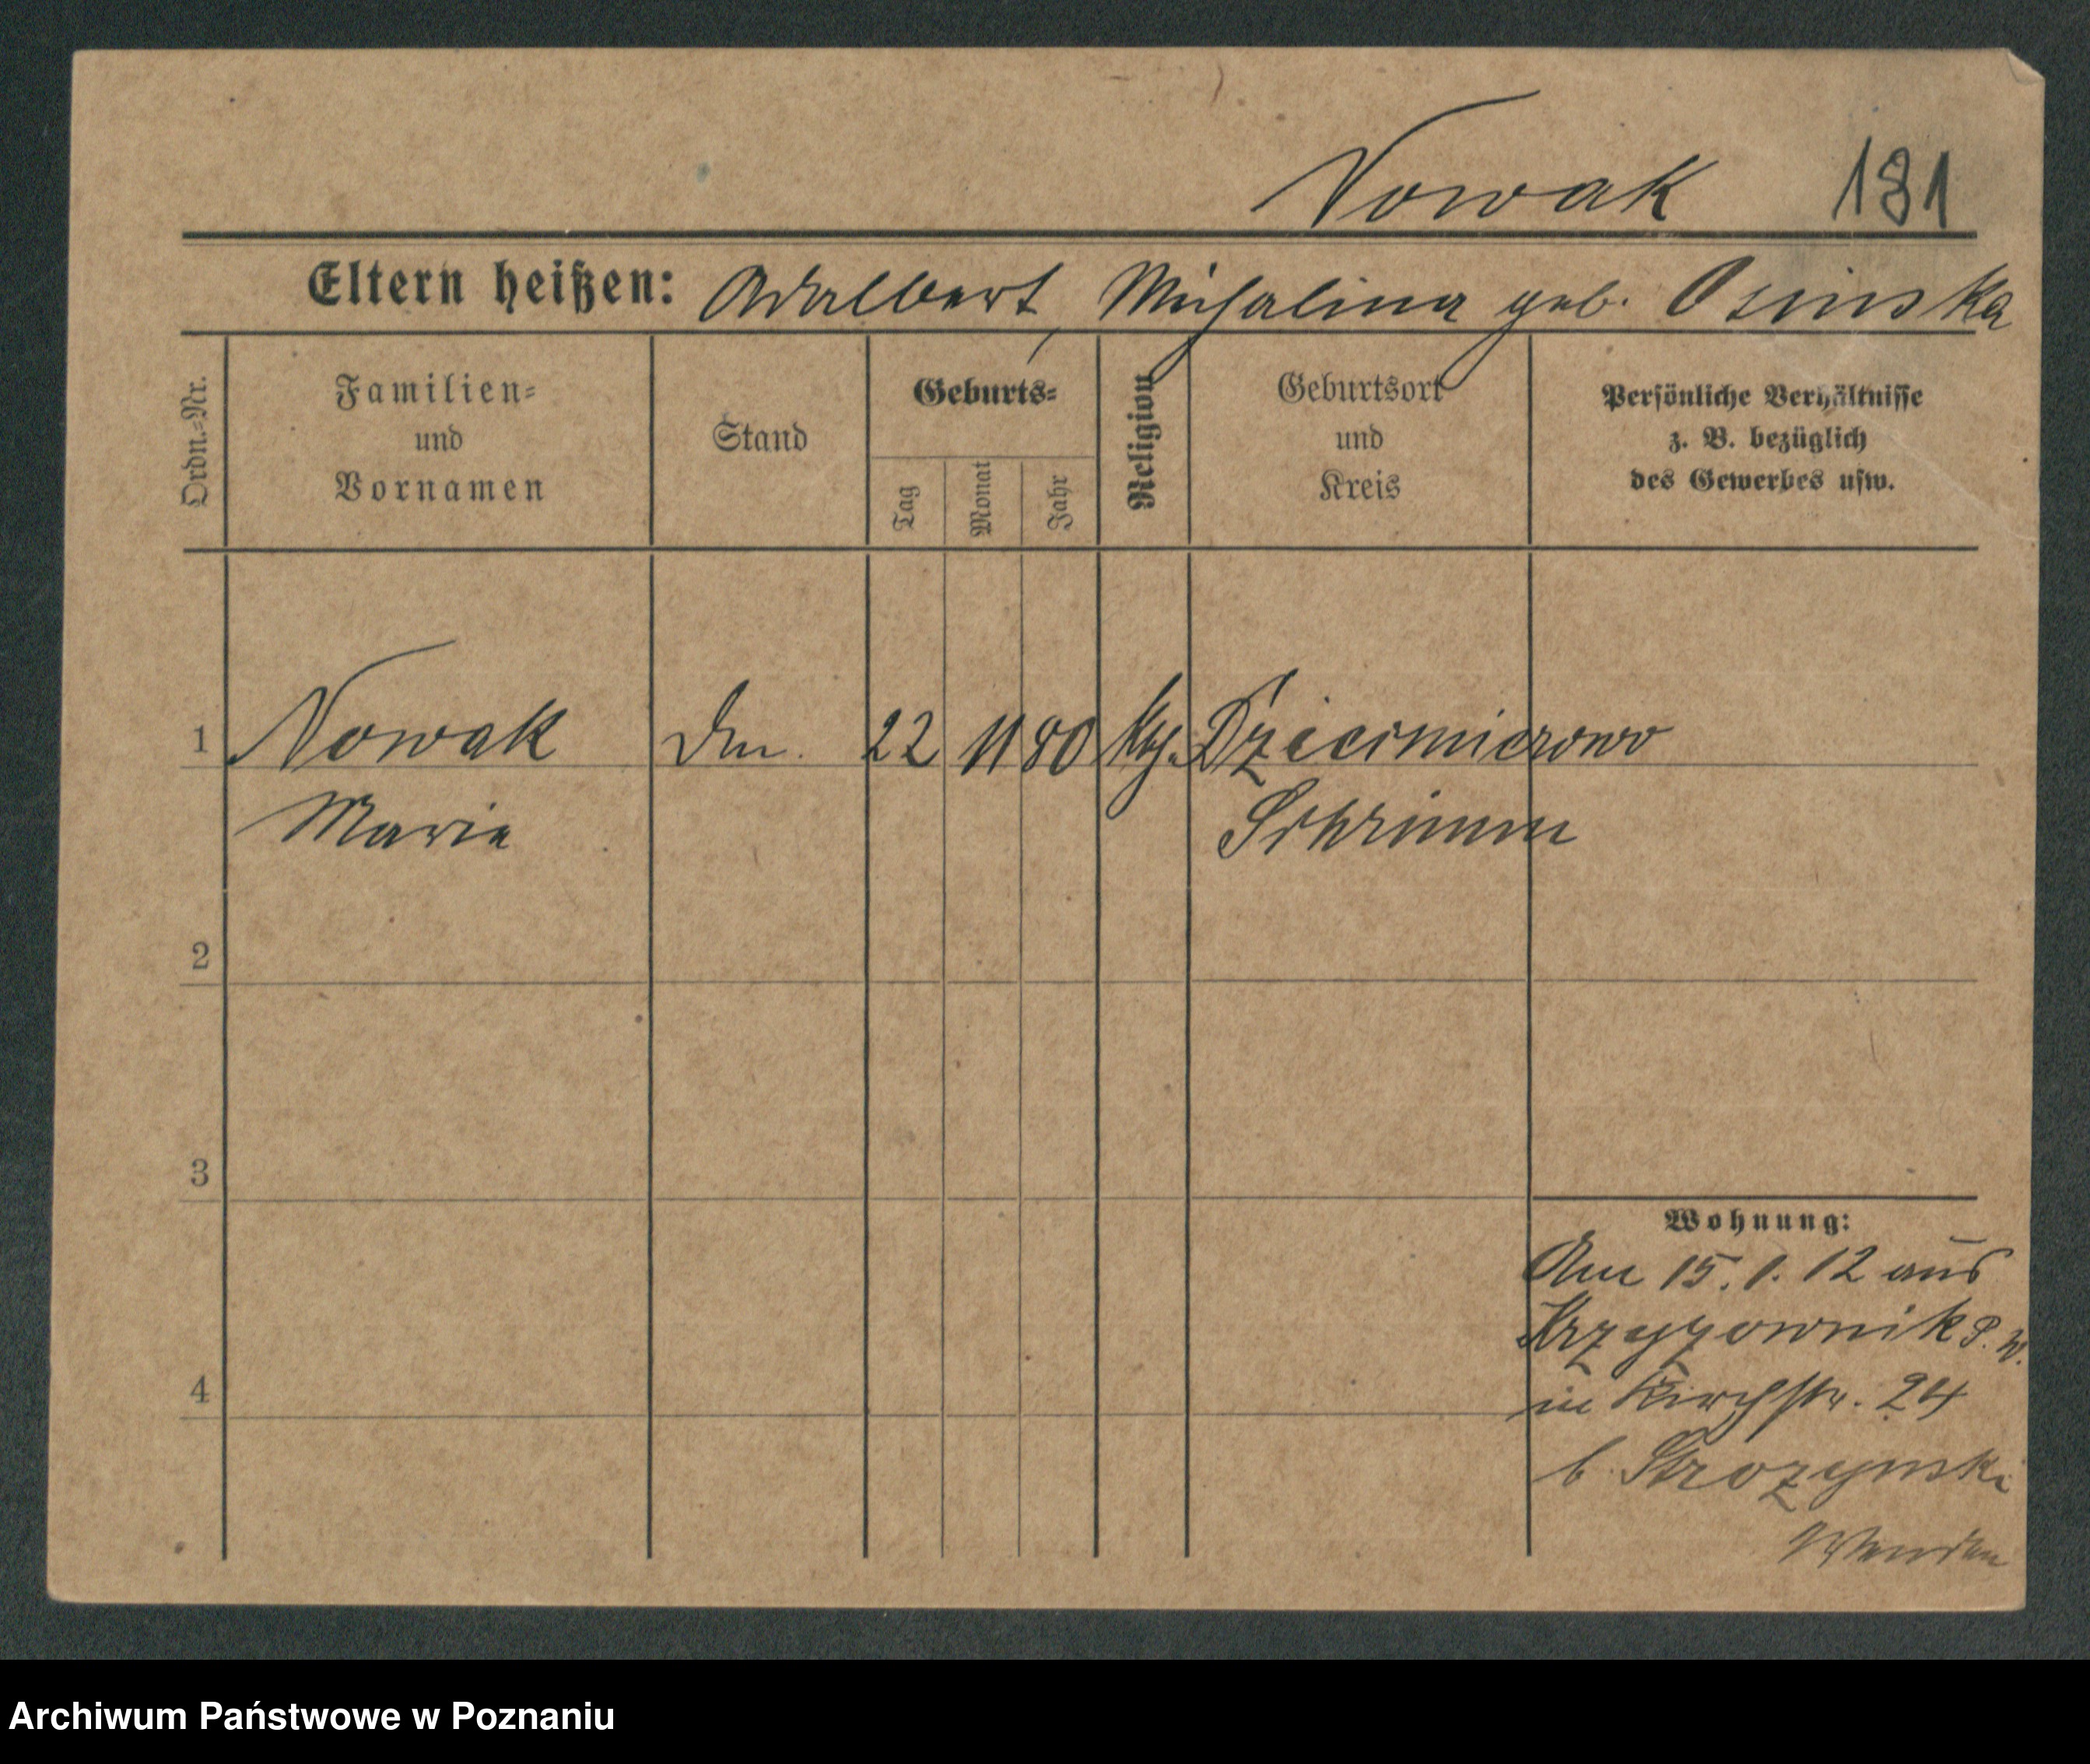 Nowak 181
Eltern heißen: Adalbert, Michalina geb. Osinska
Ordn.-Nr.
Familien-
und
Vornamen
Stand
Geburts-
Tag
Monat
Jahr
Religion
Geburtsort
und
Kreis
Persönliche Verhältnisse
z. B. bezüglich
des Gewerbes usw.
1 Nowak 22 11 80 Dziecimierowo
Marie Schrimm
2
3
Wohnung:
Am 15. 1. 12 aus
in Kirchstr. 24
4
b. Strozynski
Archiwum Państwowe w Poznaniu